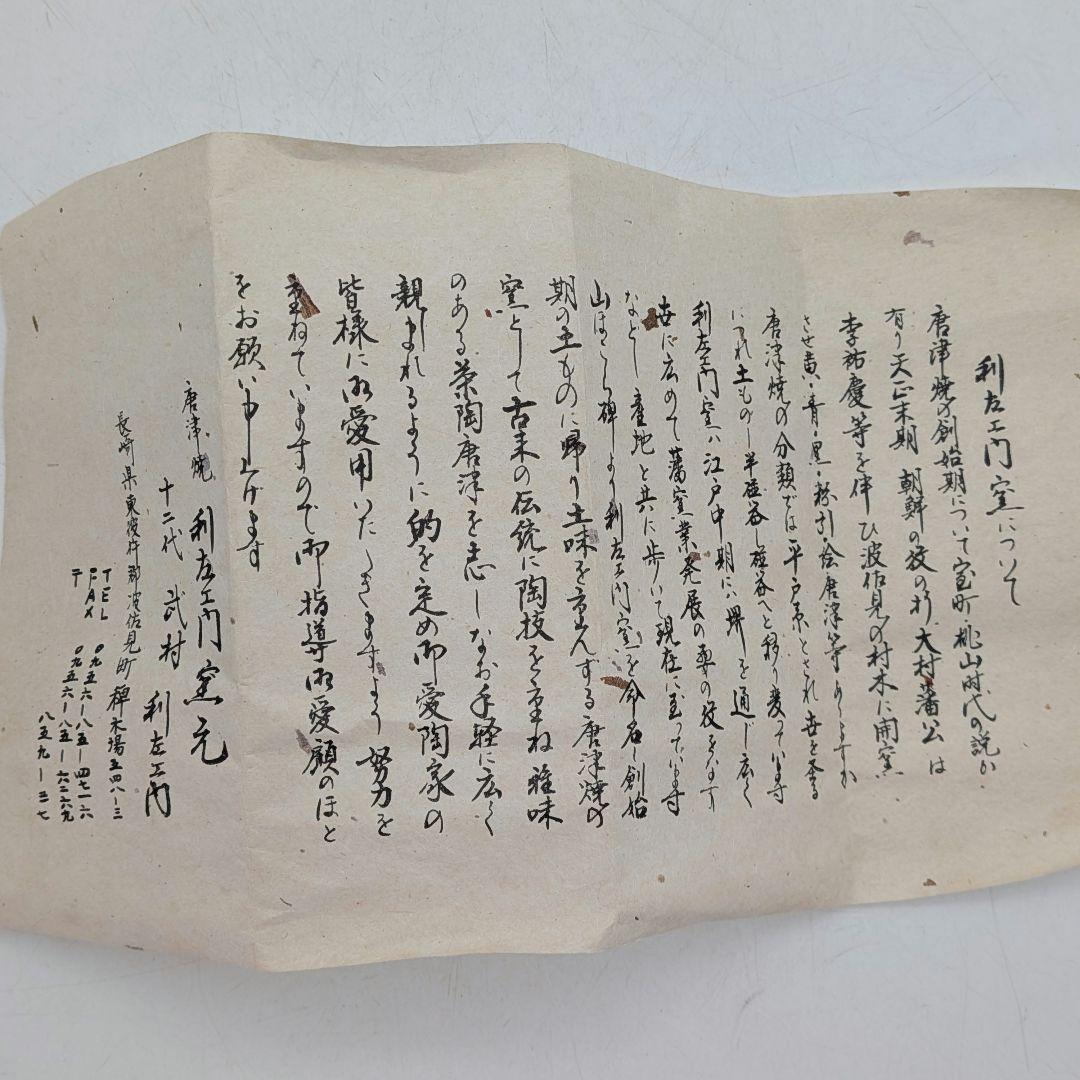 利左エ門窯について
唐津焼の創始期について室町・桃山時代の説が
有り天正末期 朝鮮の役の折 大村藩公は
李祐慶等を伴ひ波佐見の村木に開窯
させ黄・青・黒・粉引・絵唐津等ありますが
唐津焼の分類では平戸系とされ世を喬る
につれ土もの〜半磁器〜磁器へと移り変っています
利左エ門窯ハ江戸中期にハ堺を通じ広く
世に広めて藩窯業発展の要の役をなす
など し産地と共に歩いて現在に至っています
山ほこら碑より利左エ門窯を命名し創始
期の土ものに帰り土味を重んずる唐津焼の
窯として古来の伝統に陶技を重ね雅味
のある茶陶唐津を志しなお手軽に広く
親しまれるように的を定め御愛陶家の
皆様に御愛用いたゞきますよう努力を
重ねていますので御指導御愛顧のほと
をお願い申し上げます
唐津焼 利左エ門窯元
十二代 武村 利左エ門
長崎県東彼杵郡波佐見町稗木場五四八ー三
TEL 〇九五六ー八五ー四七一六
FAX 〇九五六ー八五ー六二六九
〒 八五九ー三七